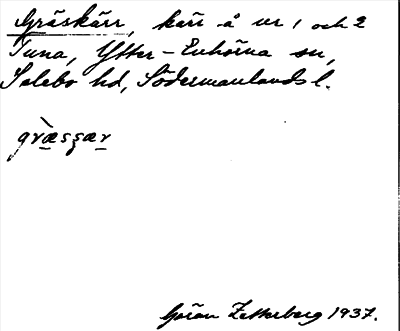 Gräskärr, kärr å nr 1 och 2
Tuna, Ytter-Enhörna sn,
Selebo hd, Södermanlands l.
græ̀sʒær
Göran Zetterberg 1937.